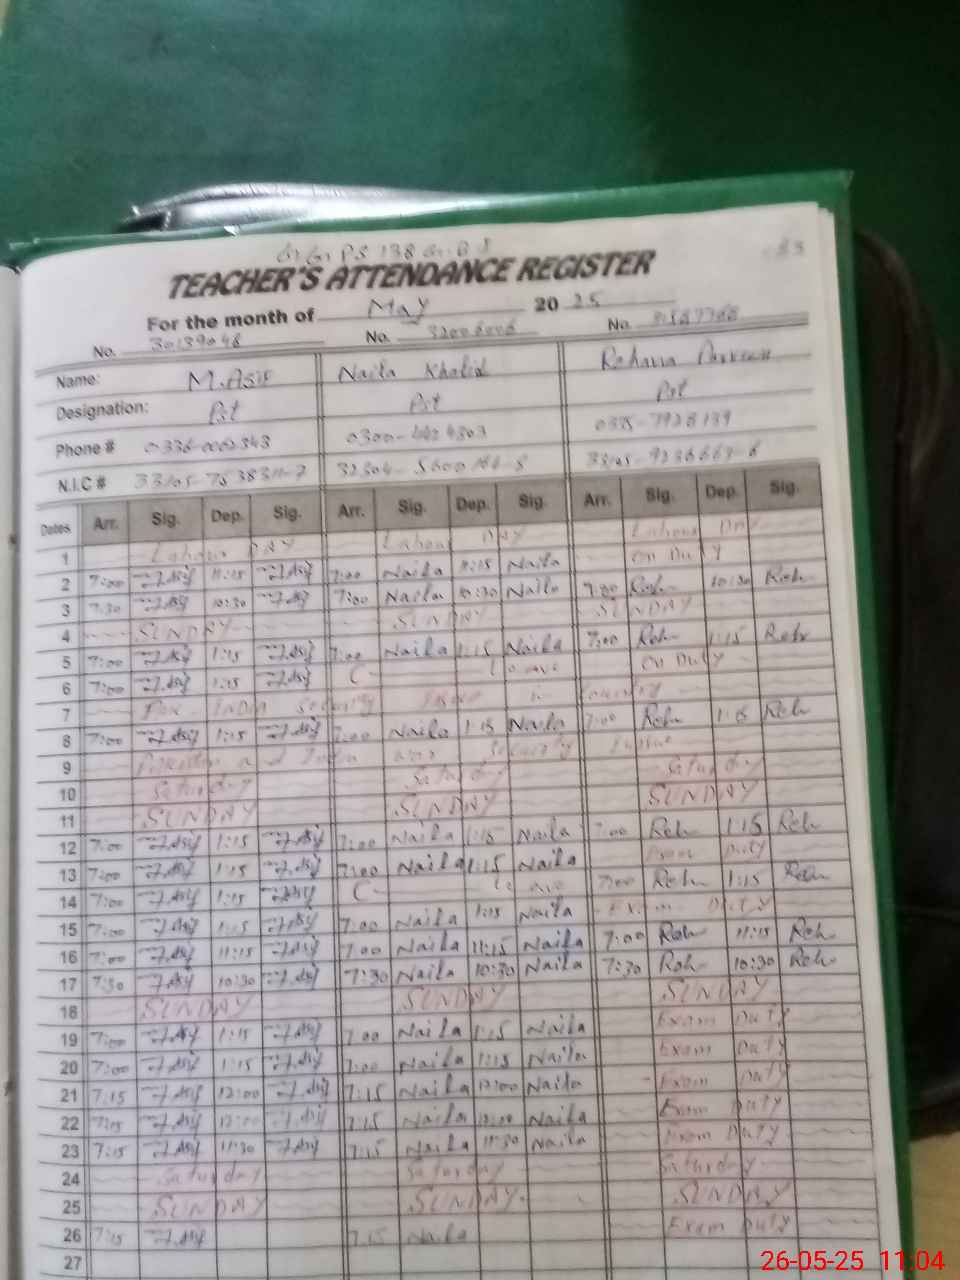 G.G.PS 138 G.B
TEACHER'S ATTENDANCE REGISTER
For the month of May 2025
No. 30139048 No. 32006006 No.
Name: M.Asif Naila Khalid Rehana
Designation: Pst Pst Pst
Phone # 0336-0062343
N.I.C #
Dates Arr. Sig. Dep. Sig. Arr. Sig. Dep. Sig. Arr. Sig. Dep. Sig.
1 Labour DAY Labour DAY Labour DAY
2 7:00 Asif 11:15 Asif 7:00 Naila 11:15 Naila On Duty
3 7:30 Asif 10:30 Asif 7:00 Naila 10:30 Naila 7:00 Reh 10:30 Reh
4 SUNDAY SUNDAY SUNDAY
5 7:00 Asif 1:15 Asif 7:00 Naila 1:15 Naila 7:00 Reh 1:15 Reh
6 7:00 Asif 1:15 Asif C Leave On Duty
7 Pak - India Security in Country
8 7:00 Asif 1:15 Asif 7:00 Naila 1:15 Naila 7:00 Reh 1:15 Reh
9 Pakistan and India war Security
10 Saturday Saturday Saturday
11 SUNDAY SUNDAY SUNDAY
12 7:00 Asif 1:15 Asif 7:00 Naila 1:15 Naila 7:00 Reh 1:15 Reh
13 7:00 Asif 1:15 Asif 7:00 Naila 1:15 Naila Exam Duty
14 7:00 Asif 1:15 Asif C Leave 7:00 Reh 1:15 Reh
15 7:00 Asif 1:15 Asif 7:00 Naila 1:15 Naila Exam Duty
16 7:00 Asif 11:15 Asif 7:00 Naila 11:15 Naila 7:00 Reh 11:15 Reh
17 7:30 Asif 10:30 Asif 7:30 Naila 10:30 Naila 7:30 Reh 10:30 Reh
18 SUNDAY SUNDAY SUNDAY
19 7:00 Asif 1:15 Asif 7:00 Naila 1:15 Naila Exam Duty
20 7:00 Asif 1:15 Asif 7:00 Naila 1:15 Naila Exam Duty
21 7:15 Asif 12:00 Asif 7:15 Naila 12:00 Naila Exam Duty
22 7:15 Asif 12:00 Asif 7:15 Naila 12:00 Naila Exam Duty
23 7:15 Asif 11:30 Asif 7:15 Naila 11:30 Naila Exam Duty
24 Saturday Saturday Saturday
25 SUNDAY SUNDAY SUNDAY
26 7:15 Asif 7:15 Naila Exam Duty
27
26-05-25 11:04